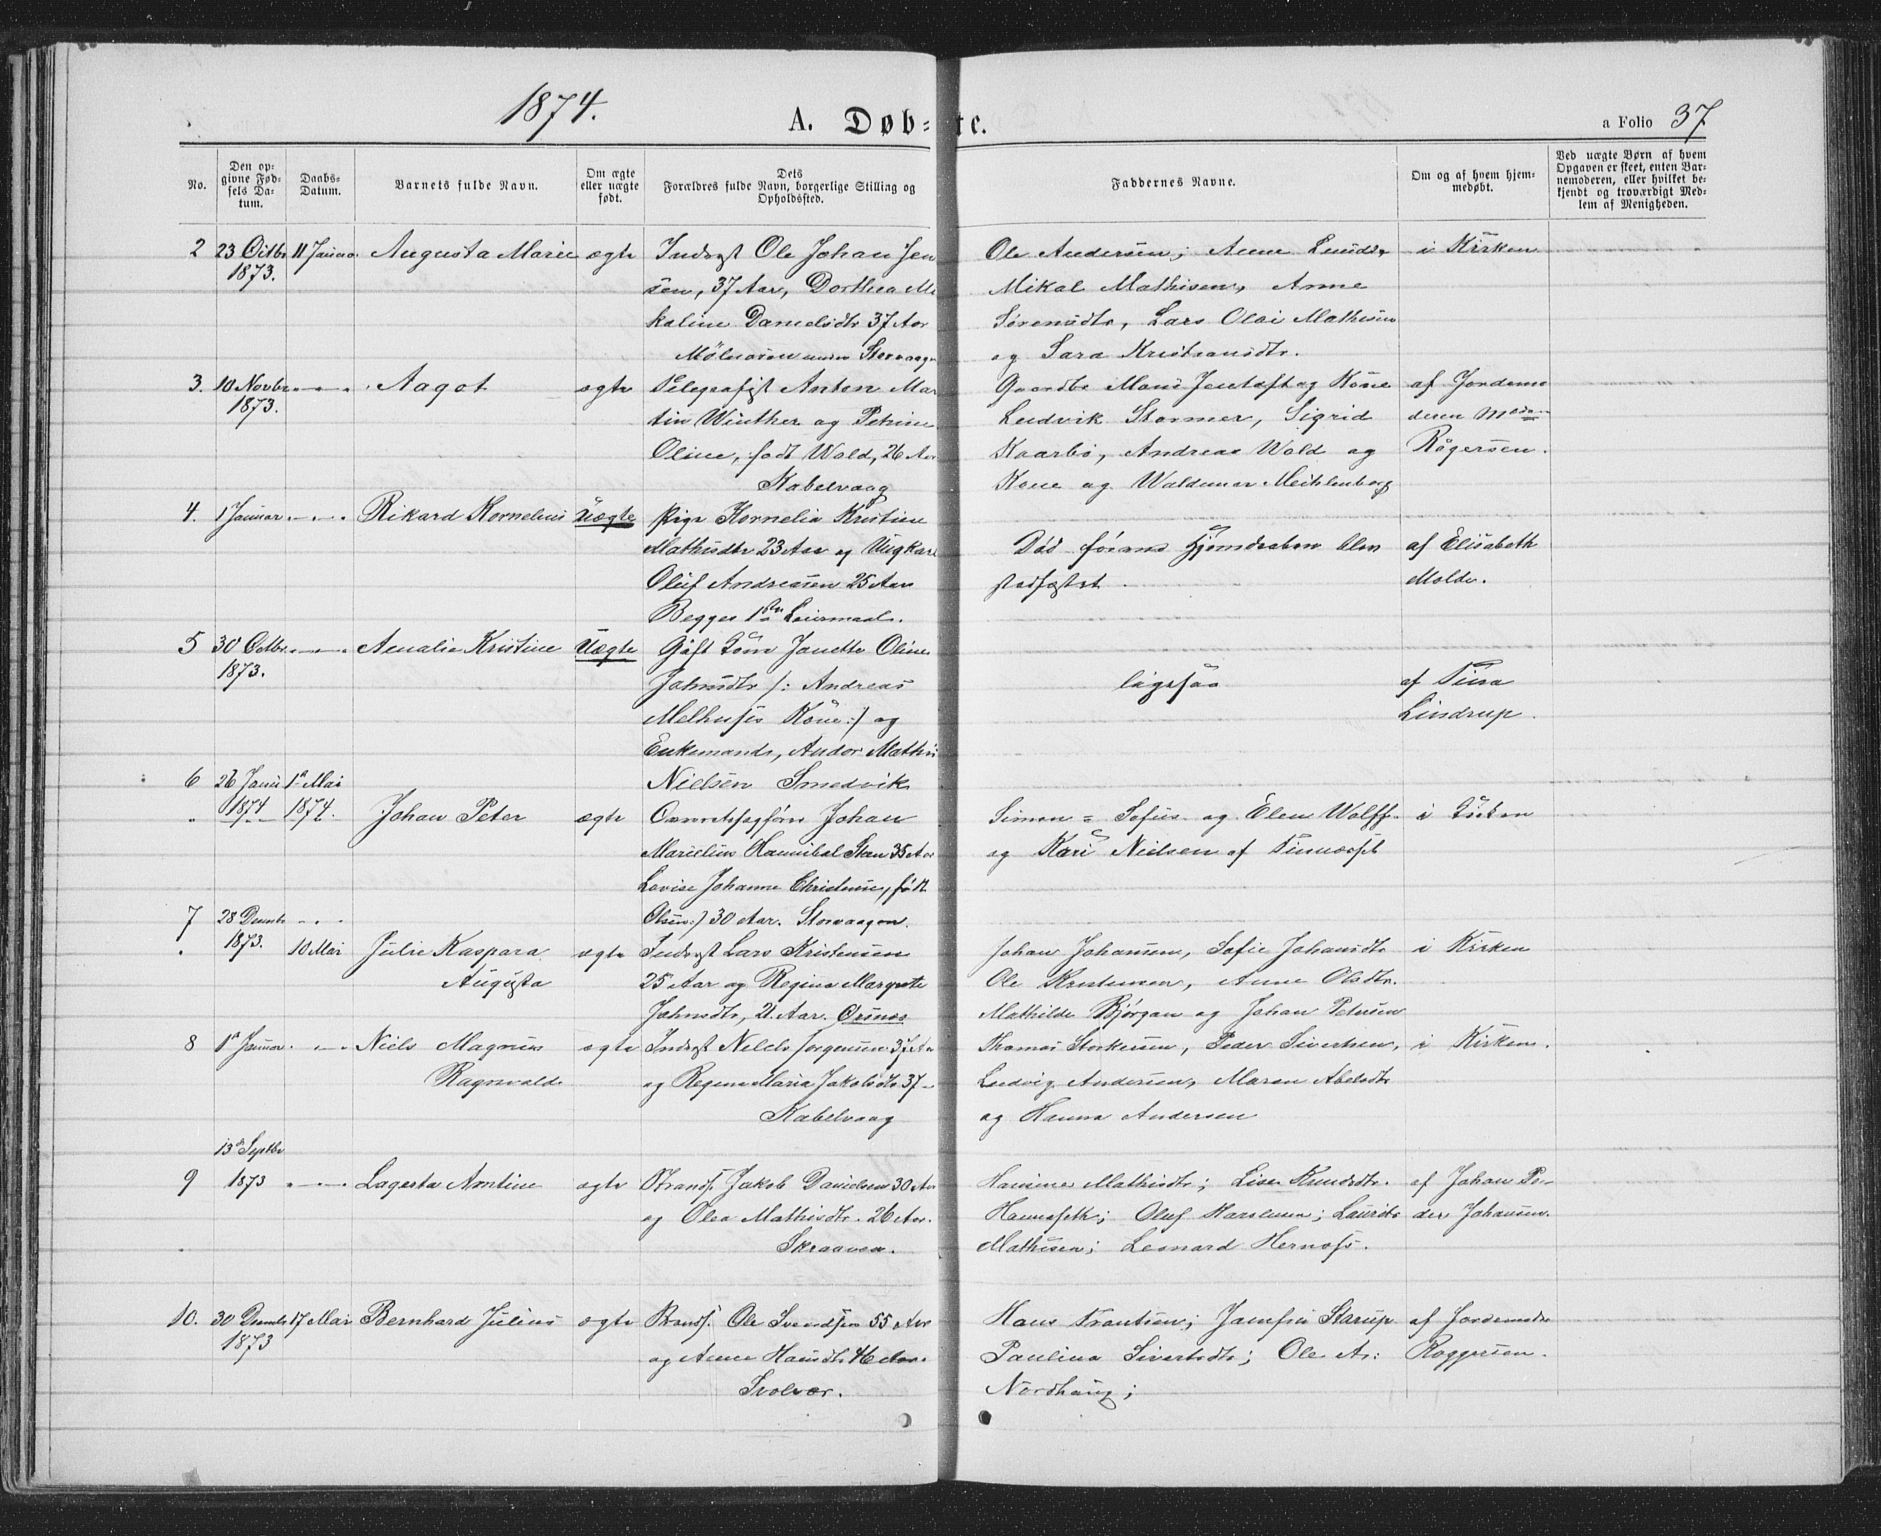 1874.
A. Døb-te.
a Folio 37
No.
Den op-
givne Fød-
sels Da-
tum.
Daabs-
Datum.
Barnets fulde Navn.
Om ægte
eller uægte
født.
Dets
Forældres fulde Navn, borgerlige Stilling og
Opholdssted.
Faddernes Navne.
Om og af hvem hjem-
medøbt.
Ved uægte Børn af hvem
Opgaven er skeet, enten Bar-
nemoderen, eller hvilket be-
kjendt og troværdigt Med-
lem af Menigheden.
2 23 Octbr 11 Januar Augusta Marie ægte Inds Ole Johan Jen
1873.
sen, 37 Aar, Dorthea Mi
kaline Danielsdtr 37 Aar
Ole Andersen; Anne
Mikal Mathisen, Anne
Sørensdtr, Lars Olai Mathisen
og Sara Kristiansdtr.
i Kirken
3. 10 Novbr Aagot ægte Telegrafist Anton Mar
1873.
tin Winther og Petrine
Oline, født Wold, 26 Aar
Kabelvaag
Ludvik Stormer, Sigrid
Kaarbø, Andreas Wold og
Kone og Waldemar Mechlenborg
af Jordemo
deren Mad
Rögersen.
4. 1 Januar Rikard Kornelius Uægte Pige Kornelia Kristine
Mathisdtr 23 Aar og Ungkarl
Oluf Andreasen 25 Aar
Begges 1ste Leiermaal.
Død førend Hjemdaaben blev
stadfæstet.
af Elisabeth
Molde.
5 30 Octbr Amalie Kristine Uægte Gift Janette Oline
1873.
Johnsdtr /: Andreas
Melhuses Kone :/ og
Enkemand, Andor Mathis
Nielsen Smedvik
ligesaa
af Tina
Lindrup.
6 26 Januar 1ste Mai
1874 1874. Johan Peter ægte Overretssagfører Johan
Marielius Hannibal Stau 35 Aar
Lovise Johanne Christense, født
Olsen:/ 30 Aar. Storvaagan.
Simon = Sofus og Elen Wolff
og Kari Nielsen af
i Kirken
7 28 Decmbr
1873. 10 Mai Julie Kaspara ægte Inds Lars Kristensen
Augusta
25 Aar og Regine Margrete
Johnsdtr, 21 Aar. Orsnæs
Johan Johansen, Sofie Johansdtr
Ole Kristensen, Anne Olsdtr.
Mathilde Bjørgan og Johan Petersen
i Kirken
8 1ste Januar Niels Magnus ægte Inds Nils Jørgensen 37 Aar
Ragnvald
og Regine Maria Jakobsdtr 37 -
Kabelvaag
Thomas Storkersen, Peder Sivertsen,
Ludvig Andersen, Maren Abelsdtr
og Hanna Andersen
i Kirken.
13de Septbr
9 1873 Lagerta Amtine ægte Strands. Jakob Danielsen 30 Aar
og Olea Mathisdtr. 26 Aar.
Skraaven.
Hansine Mathisdtr; Lisa Knudsdtr.
Oluf Laurits
Mathisen; Leonard
af Johan Pe-
der Johansen.
10. 30 Decmbr 17 Mai Bernhard Julius ægte Strands. Ole Svendsen 55 Aar
1873
og Anne Hansdtr 46 Aar.
Svolvær.
Hans Frantsen; Starup
Paulina Sivertsdtr; Ole As:
Nordhaug;
af Jordemodr
Roggersen.